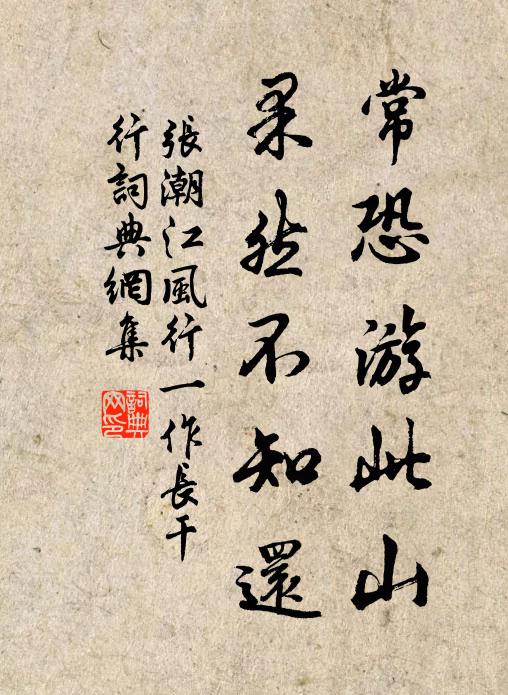 常恐游此山
果然不知還
張潮江風行一作長干
行詞典網集
詞典網印